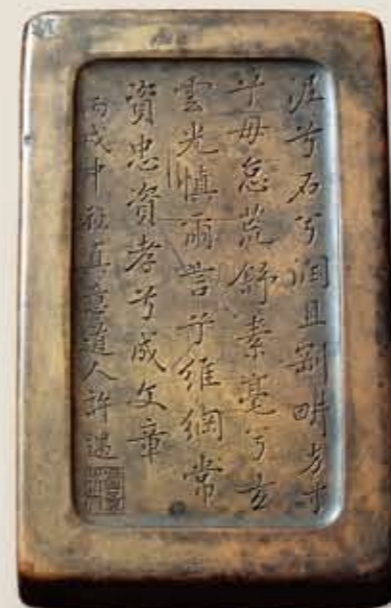 泥兮石兮润且剛畊方寸
兮毋怠荒舒素毫兮玄
雲光慎爾言兮維綱常
資忠資孝兮成文章
丙戌中秋真意道人許遇